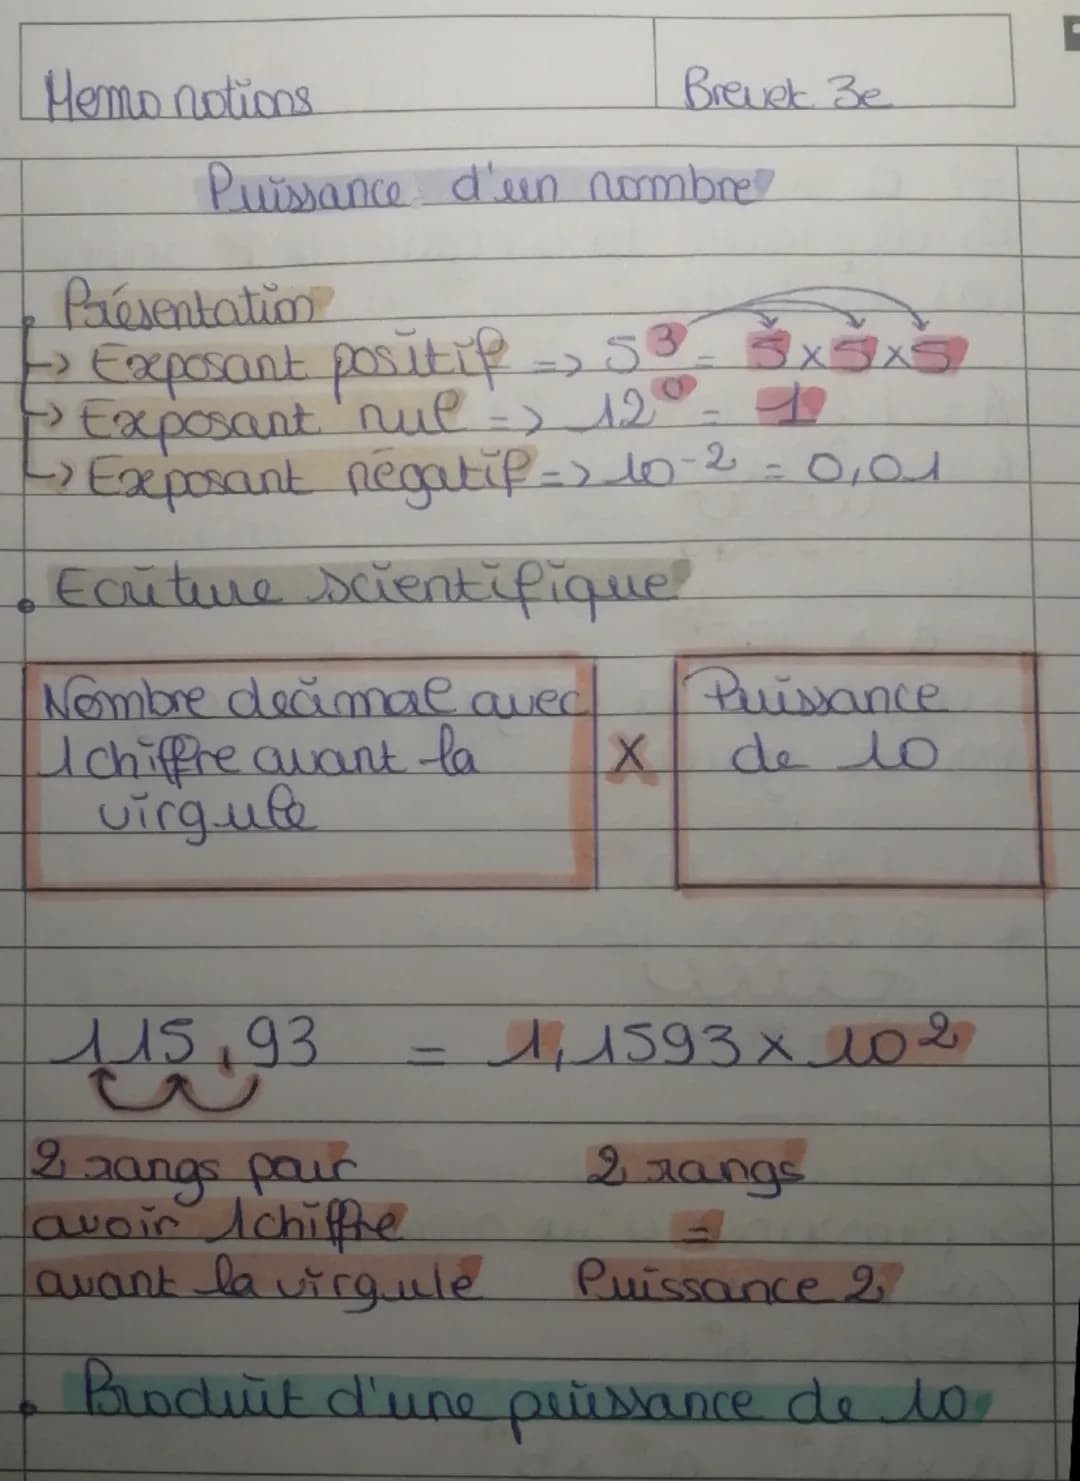 Memo notions
Brevet 3e
Puissance d'un nombre
Présentation
-> Exposant positif => 5³ = 5x5x5
-> Exposant nul => 12⁰ = 1
-> Exposant négatif => 10⁻² = 0,01
Ecriture scientifique
Nombre décimal avec
1 chiffre avant la
virgule
x
Puissance
de 10
115,93 = 1,1593 x 10²
2 rangs pour
avoir 1 chiffre
avant la virgule
2 rangs
=
Puissance 2
Produit d'une puissance de 10